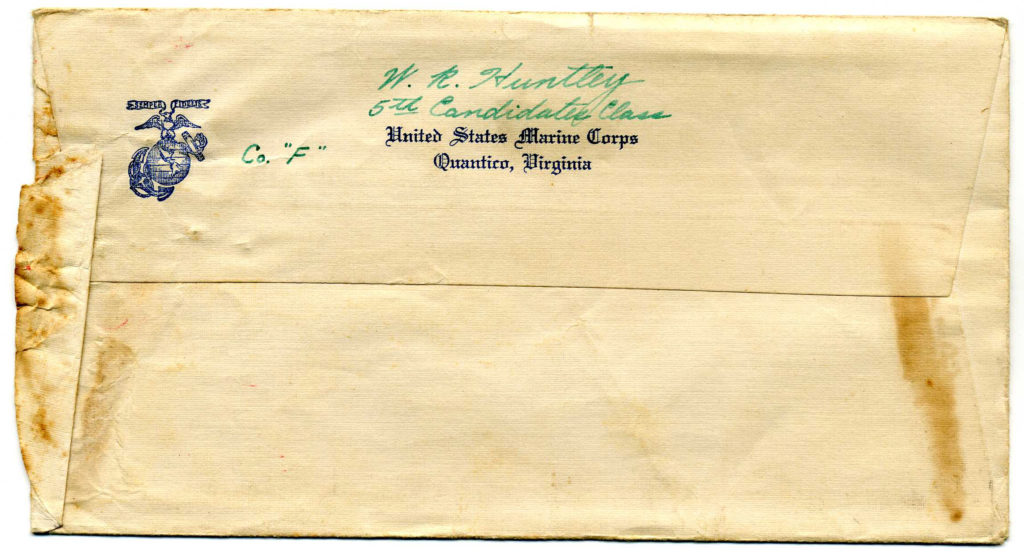 SEMPER FIDELIS
W. R. Huntley
5th Candidates Class
United States Marine Corps
Co. "F"
Quantico, Virginia